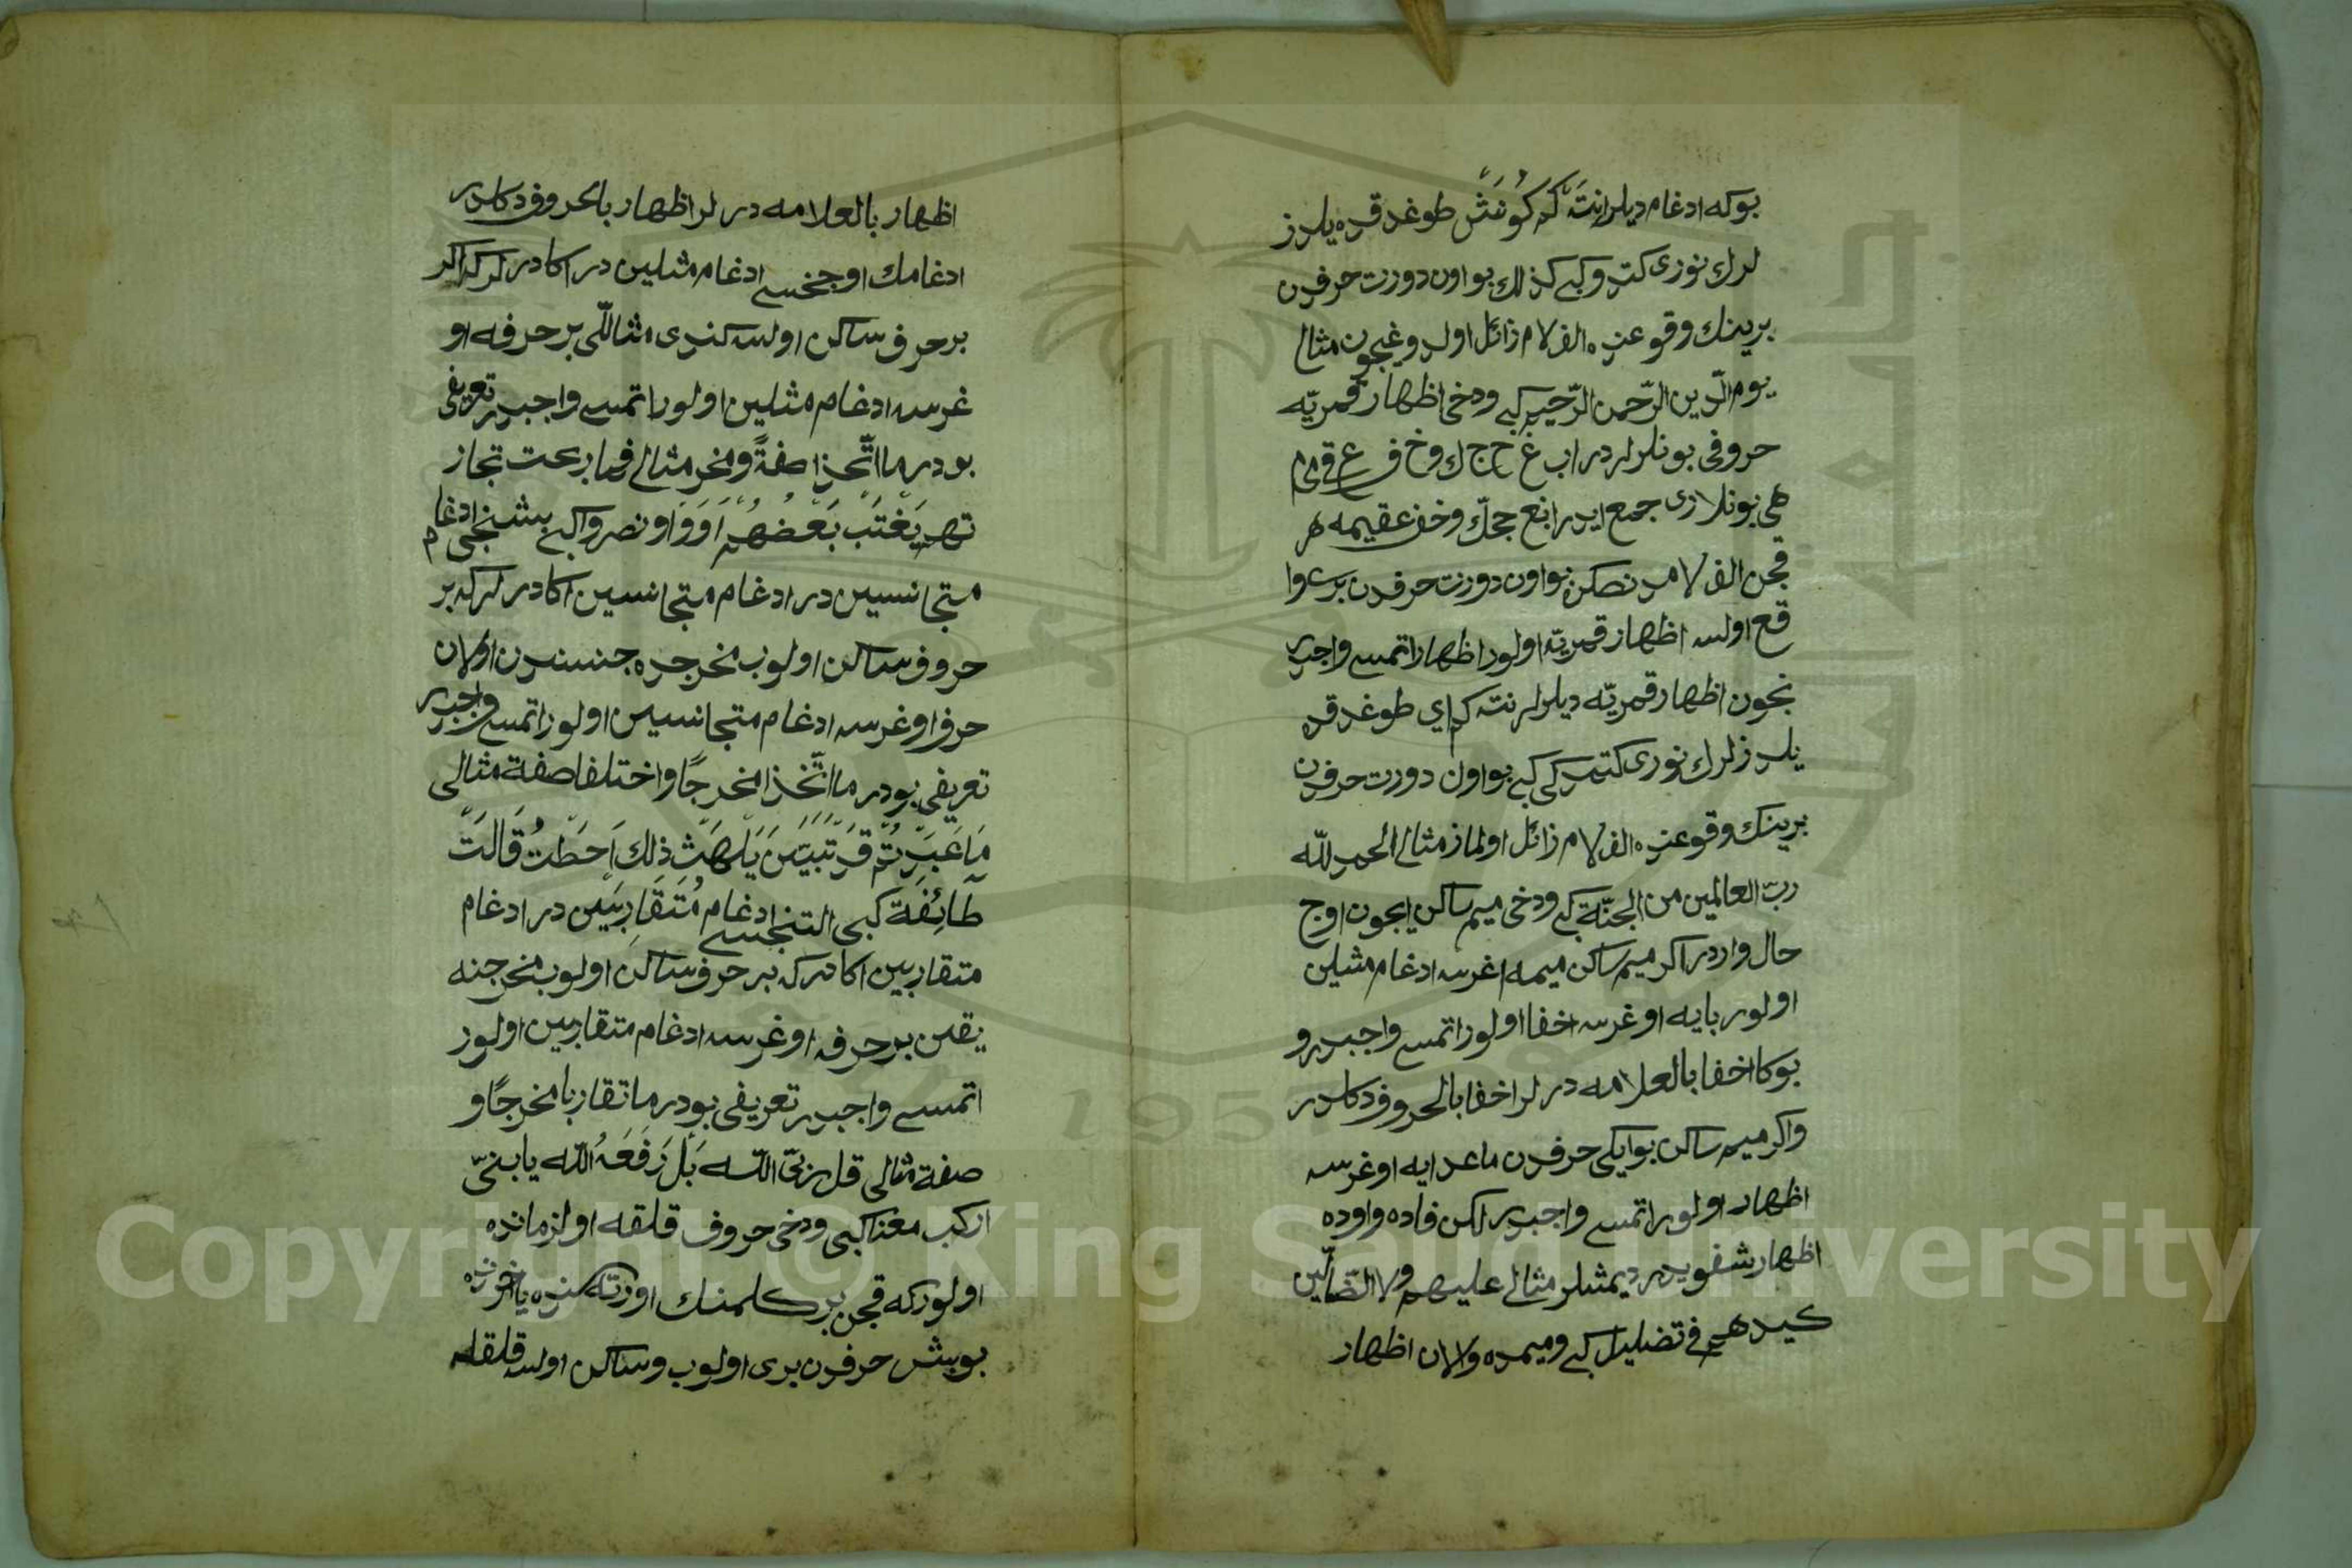 بوكه ادغام ديلر انته كه كونش طوغدقده يلدز
لرك نورى كتدوكى كبى كذلك بو اون دورت حرفدن
برينك وقوعنده الف لام زائل اولدوغيچون مثال
يوم الدّين الرّحمن الرّحيم كبى ودخى اظهار قمريّه
حروفى بونلرلردر ا ب غ ح ج ك و خ ف ع ق ى م
ه بونلارى جمع ايدر ابغ حجّك وخف عقيمه هر
قچن الف لامدن صكره بو اون دورت حرفدن برى وا
قع اولسه اظهار قمريّه اولور اظهار اتمسى واجبدر
نچون اظهار قمريّه ديلرلر نته كم اي طوغدقده
يلدزلرك نورى كتمدكى كبى بو اون دورت حرفدن
برينك وقوعنده الف لام زائل اولماز مثال الحمد للّه
ربّ العالمين من الجنّة كبى ودخى ميم ساكن ايچون اوچ
حال واردر اكر ميم ساكن ميمه اغرسه ادغام مثلين
اولور بايه اوغرسه اخفا اولور اتمسى واجبدر و
بوكا اخفا بالعلامه درلر اخفا بالحروف دكلدر
واكر ميم ساكن بو ايكى حرفدن ماعدايه اوغرسه
اظهار اولور اتمسى واجبدر لكن فاده واوده
اظهار شفويدر ديمشلر مثال عليهم ولا الضّالّين
كيدهم فى تضليل كبى وميمده ولان اظهار
اظهار بالعلامه درلر اظهار بالحروف دكلدر
ادغامك اوچنجسى ادغام مثلين در اكا درلركه اكر
بر حرف ساكن اولسه كندى مثاللّى بر حرفه او
غرسه ادغام مثلين اولور اتمسى واجبدر تعريفى
بودر ما اتّحذا صفةً ومخر مثال فما ربحت تجار
تهم يغتب بعضهم اووا ونصروا كبى بشنجى ادغام
متجانسين در ادغام متجانسين اكا درلركه بر
حروف ساكن اولوب مخرجده جنسندن اولان
حرفه اوغرسه ادغام متجانسين اولور اتمسى واجبدر
تعريفى بودر ما اتّخذا مخرجًا واختلفا صفة مثالى
ما عبدتم قد تبيّن يلهث ذلك احطت قالت
طائفة كبى التنجسى ادغام متقاربين در ادغام
متقاربين اكا دركه بر حرف ساكن اولوب مخرجنه
يقين بر حرفه اوغرسه ادغام متقاربين اولور
اتمسى واجبدر تعريفى بودر ما تقاربا مخرجًا و
صفة مثالى قل ربّى اللّه بل رفعه اللّه يا بنىّ
اركب معنا كبى ودخى حروف قلقه اولزمانده
اولوركه قچن بر كلمنك اورته سنده يا خرنده
بو بش حرفدن برى اولوب وساكن اولسه قلقله